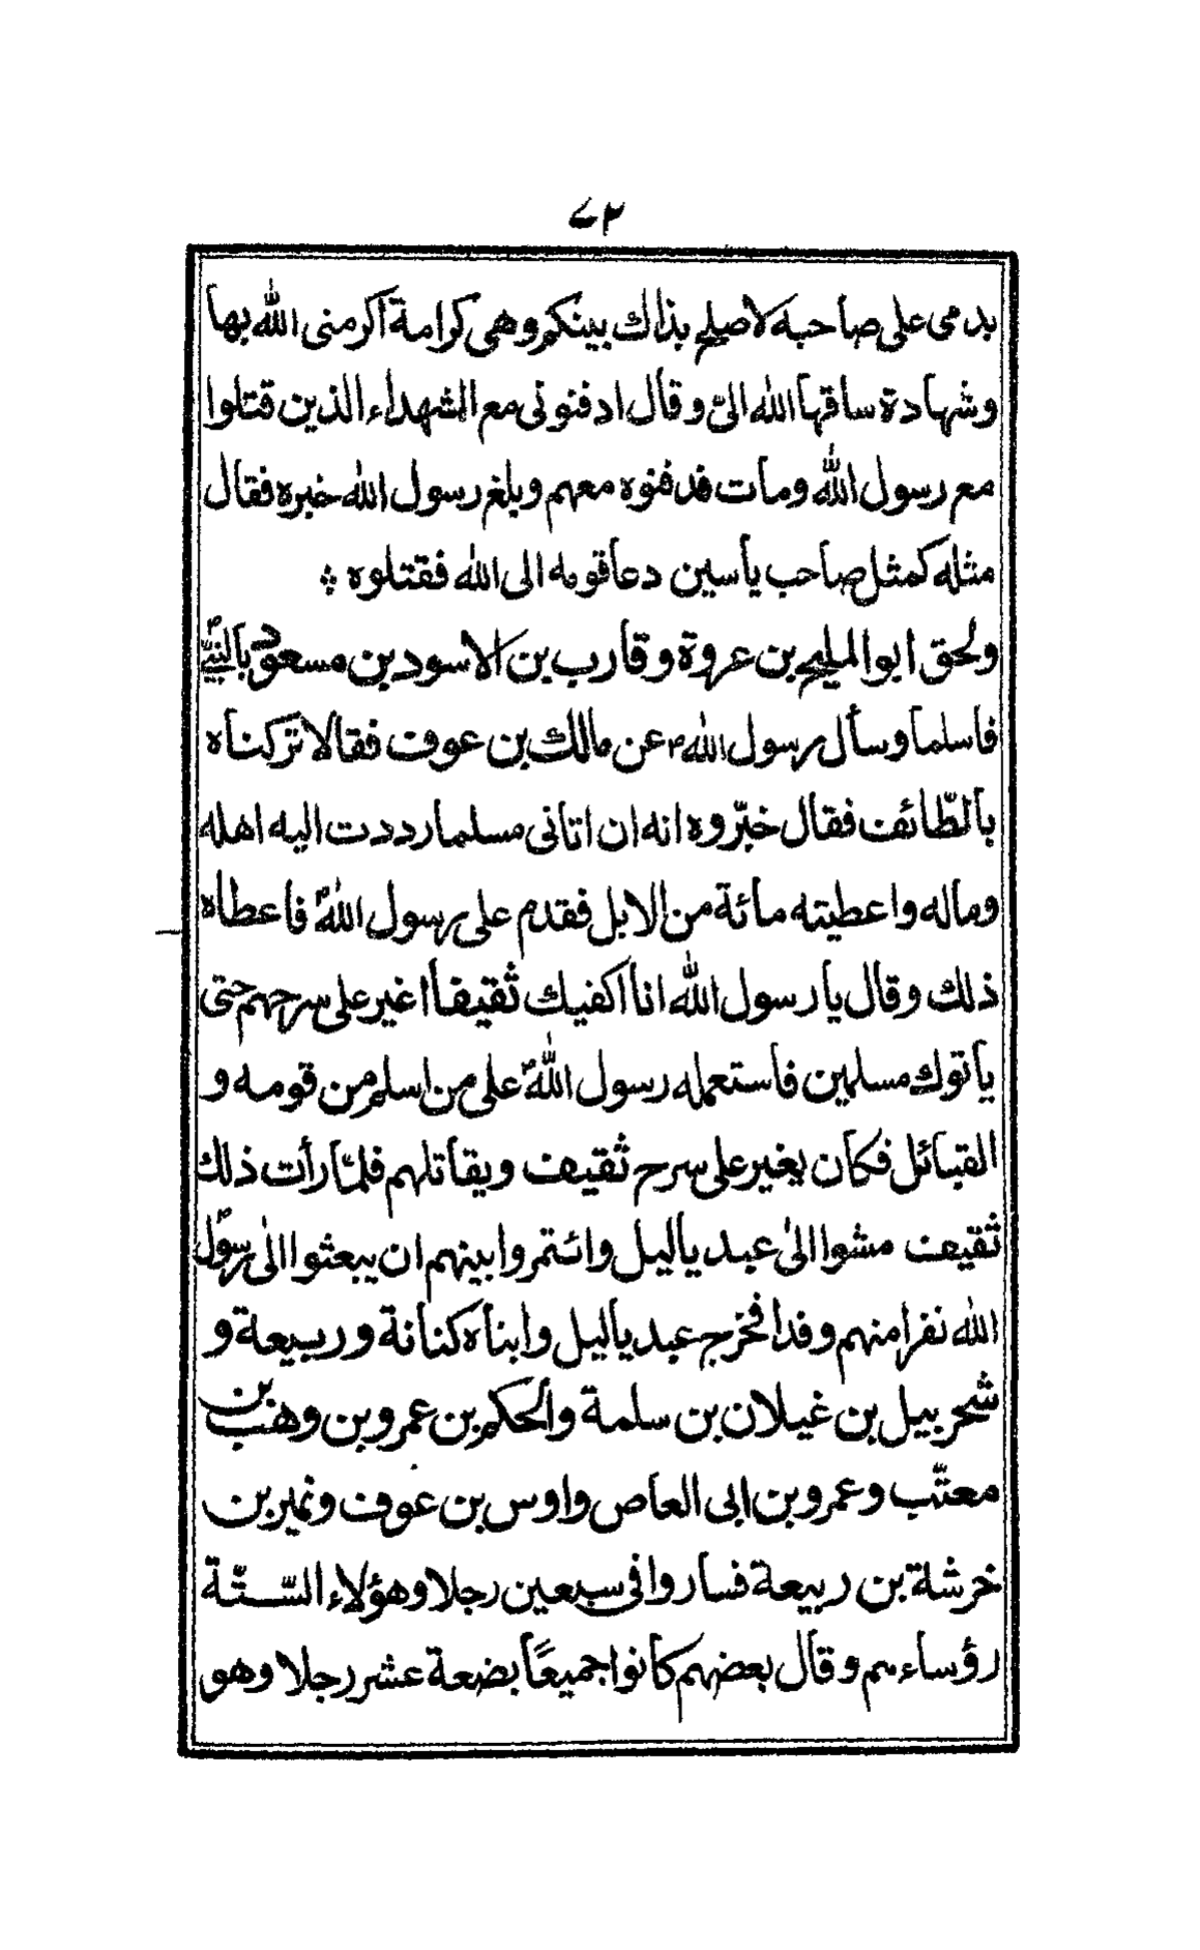 ٧٢
بدمي على صاحبه لاصلح بذلك بينكم وهي كرامة أكرمني الله بها
وشهادة ساقها الله الىّ وقال ادفنوني مع الشهداء الذين قتلوا
مع رسول الله ومات فدفنوه معهم وبلغ رسول الله خبره فقال
مثله كمثل صاحب ياسين دعا قومه الى الله فقتلوه ۞
ولحق ابوالمليح بن عروة وقارب بن الاسود بن مسعود بالنبيؐ
فاسلما وسأل رسول اللهؐ عن مالك بن عوف فقالا تركناه
بالطّائف فقال خبّروه انه ان اتاني مسلما رددت اليه اهله
وماله واعطيته مائة من الابل فقدم على رسول اللهؐ فاعطاه
ذلك وقال يا رسول الله انا اكفيك ثقيفا اغير على سرحهم حتى
ياتوك مسلمين فاستعمله رسول اللهؐ على من اسلم من قومه و
القبائل فكان يغير على سرح ثقيف ويقاتلهم فلمّا رأت ذلك
ثقيف مشوا الىٰ عبد ياليل وائتمروا بينهم ان يبعثوا الىٰ رسول
الله نفرا منهم وفدا فخرج عبد ياليل وابناه كنانة وربيعة و
شحربيل بن غيلان بن سلمة والحكم بن عمرو بن وهب بن
معتّب وعمرو بن ابي العاص واوس بن عوف ونمير بن
خرشة بن ربيعة فساروا في سبعين رجلا وهؤلاء السّتّة
رؤساءهم وقال بعضهم كانوا جميعًا بضعة عشر رجلا وهو